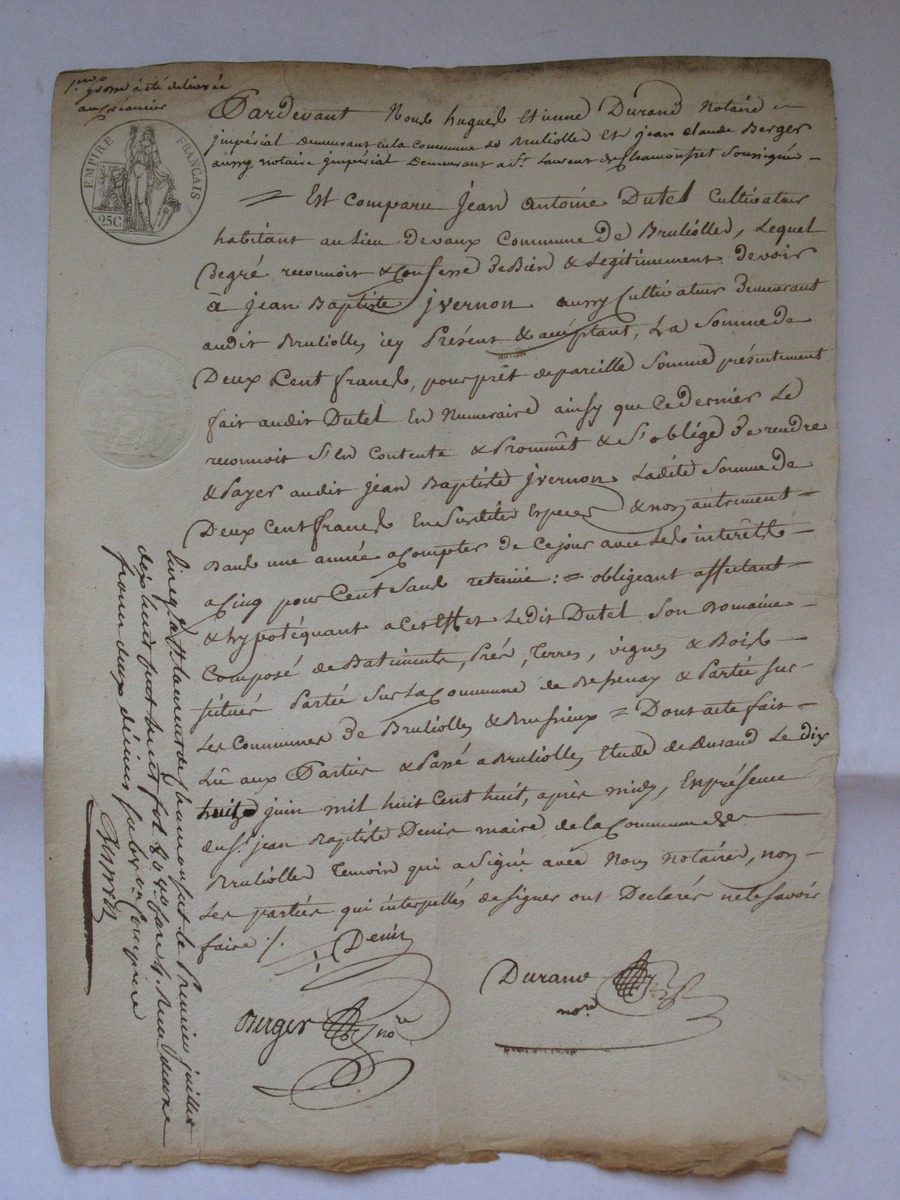 1re grosse a été délivrée
au créancier
EMPIRE FRANÇAIS
25C
Pardevant Nous hugues Etienne Durand Notaire
impérial Demeurant en la Commune de Brullioles et jean claude Berger
aussy notaire impérial Demeurant a St. Laurent de Chamousset Soussignés
Est comparu Jean antoine Dutel Cultivateur
habitant au lieu Devaux Commune De Brullioles, Lequel
De gré reconnoit & Confesse De Bien & Légitimement Devoir
à Jean Baptiste jvernon aussy Cultivateur Demeurant
audit Brullioles icy Présent & acceptant, La Somme De
Deux Cent francs, pour prêt de pareille Somme présentement
fait audit Dutel En Numeraire ainsy que Ce dernier Le
reconnoit S'En Contente & Prommet & S'oblige De rendre
& Payer audit jean Baptiste jvernon Ladite Somme De
Deux Cent francs En Susdites Especes & non autrement
Dans une année a Compter De Ce jour avec Les interêts
a Cinq pour Cent Sans retenue := obligeant affectant
& hypotéquant a Cet Effet Ledit Dutel Son Domaine
Composé de Batiments, Prés, Terres, vignes & Bois
Situés Partie Sur La Commune de Bessenay & Partie Sur
Les Communes De Brullioles & Brussieux = Dont acte fait
Lû aux Parties & Passé a Brullioles Etude de Durand Le dix
huit juin mil huit Cent huit, après midy, En présence
du Sr. jean Baptiste Denis maire de la Commune de
Brullioles Temoin qui a Signé avec Nous notaires, non
Les parties qui interpellés de signer ont Déclarés ne le Savoir
faire ./.
Denis
Durand
nore
Berger nore
Enreg. à St Laurent de Chamousset le Premier juillet
dix huit cent huit fol. 80 Vo Case 4. Reçu deux
francs deux décimes Subvon Comprise